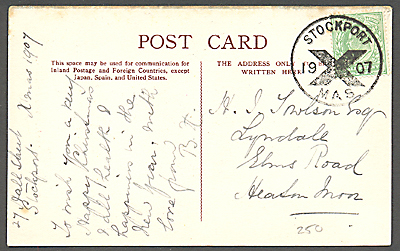 POST CARD
This space may be used for communication for
Inland Postage and Foreign Countries, except
Japan, Spain, and United States.
THE ADDRESS ONLY
WRITTEN HERE
STOCKPORT
19 X 07
MAS
27 Hall Street
Stockport. Xmas 1907
To wish you a very
Happy Christmas
& all Health &
happiness in the
New Year. with
love from
H. J. Esq
Lyndale
Elms Road
Heaton Moor
250